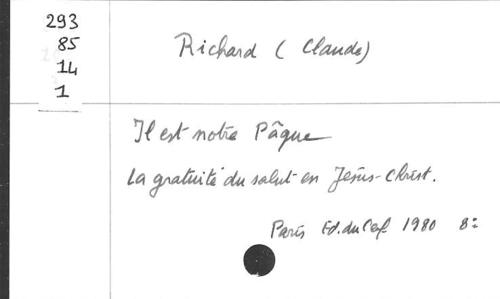 293
85
14
1
Richard (Claude)
Il est notre Pâque
La gratuité du salut en Jésus-Christ.
Paris Ed. du Cerf 1980 8º